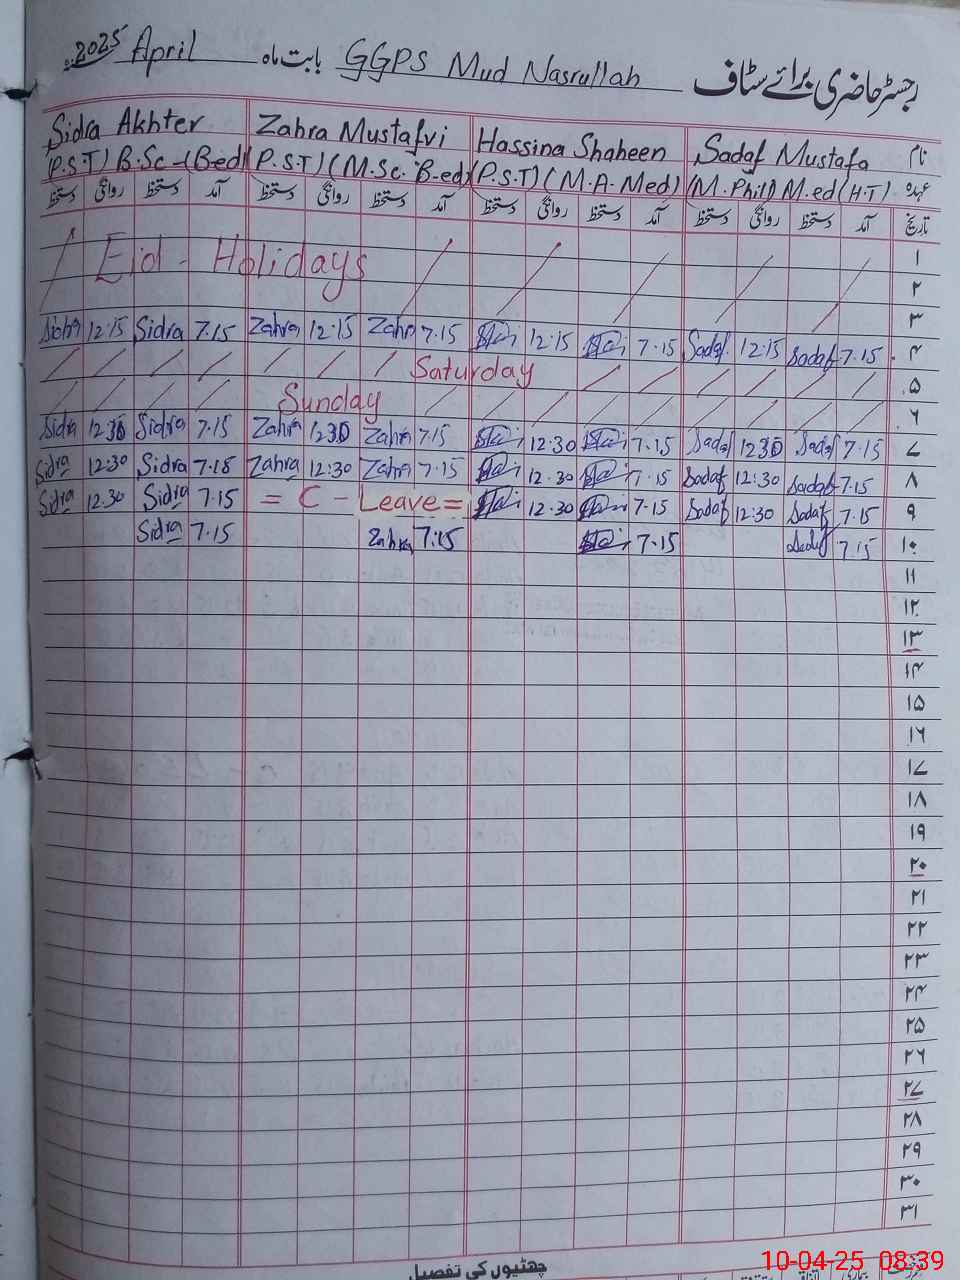 رجسٹر حاضری برائے سٹاف GGPS Mud Nasrullah بابت ماہ April 2025
نام Sadaf Mustafa Hassina Shaheen Zahra Mustafvi Sidra Akhter
عہدہ (M.Phil) M.ed (H.T) (P.S.T) (M.A. Med) (P.S.T) (M.Sc. B-ed) (P.S.T) B.Sc - (B-ed)
تاریخ آمد دستخط روانگی دستخط آمد دستخط روانگی دستخط آمد دستخط روانگی دستخط آمد دستخط روانگی دستخط
۱
Eid - Holidays ۲
۳
Sidra 12:15 Sidra 7.15 Zahra 12:15 Zahra 7.15 12:15 7.15 Sadaf 12:15 Sadaf 7.15 ۴
Saturday ۵
Sunday ۶
Sidra 12 30 Sidra 7.15 Zahra 12 30 Zahra 7.15 12:30 7.15 Sadaf 12 30 Sadaf 7.15 ۷
Sidra 12:30 Sidra 7.15 Zahra 12:30 Zahra 7.15 12.30 7.15 Sadaf 12:30 Sadaf 7.15 ۸
Sidra 12.30 Sidra 7.15 = C - Leave = 12.30 7.15 Sadaf 12:30 Sadaf 7.15 ۹
Sidra 7.15 Zahra 7.15 7.15 Sadaf 7.15 ۱۰
۱۱
۱۲
۱۳
۱۴
۱۵
۱۶
۱۷
۱۸
۱۹
۲۰
۲۱
۲۲
۲۳
۲۴
۲۵
۲۶
۲۷
۲۸
۲۹
۳۰
۳۱
چھٹیوں کی تفصیل
10-04-25 08:39